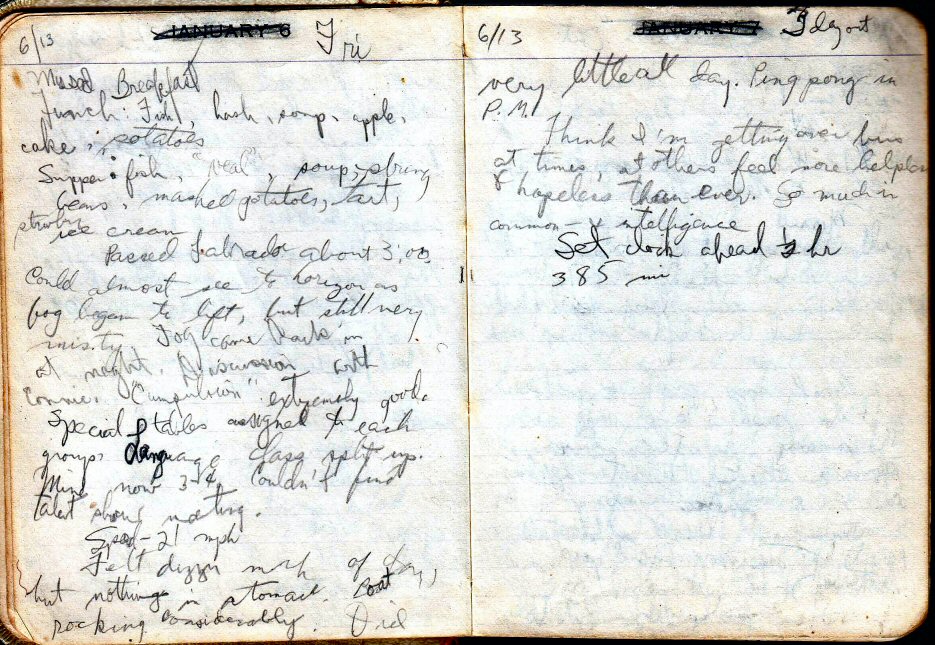 6/13 JANUARY 6 Fri
Missed Breakfast
Lunch: Fish, hash, soup, apple,
cake, potatoes
Supper: fish, "veal", soup, string
beans, mashed potatoes, tart,
strwbry
ice cream
Passed Labrador about 3:00.
Could almost see to horizon as
fog began to lift, but still very
misty. Fog came back in
at night. Discussion with
Connie. "Compulsion" extremely good.
Special tables assigned to each
group. Language class split up.
Mine now 3-4. Couldn't find
talent show meeting.
Speed-21 mph
Felt dizzy much of day,
but nothing in stomach. Boat
rocking considerably. Did
6/13 JANUARY 7 3 day out
very little all day. Ping pong in
P.M.
Think I'm getting over
at times, at others feel more helpless
& hopeless than ever. So much in
common - intelligence
Set clock ahead ½ hr
385 mi